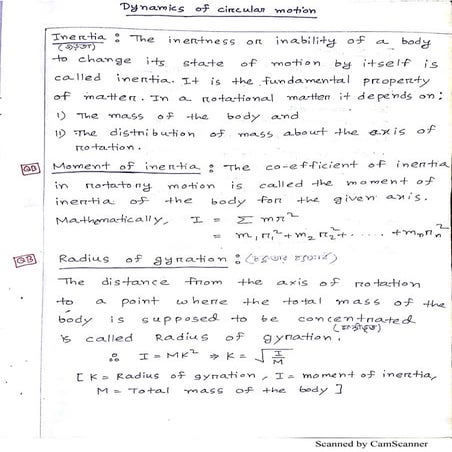 Dynamics of circular motion
Inertia : The inertness or inability of a body
(জড়তা)
to change its state of motion by itself is
called inertia. It is the fundamental property
of matter. In a rotational matter it depends on:
i) The mass of the body and
ii) The distribution of mass about the axis of
rotation.
GB Moment of inertia : The co-efficient of inertia
in rotatory motion is called the moment of
inertia of the body for the given axis.
Mathematically, I = Σ mr²
= m₁r₁² + m₂r₂² + ..... + mₙrₙ²
GB Radius of gyration :
The distance from the axis of rotation
to a point where the total mass of the
body is supposed to be concentrated
is called Radius of gyration.
∴ I = MK² ⇒ K = √(I/M)
[ K = Radius of gyration, I = moment of inertia,
M = Total mass of the body ]
Scanned by CamScanner